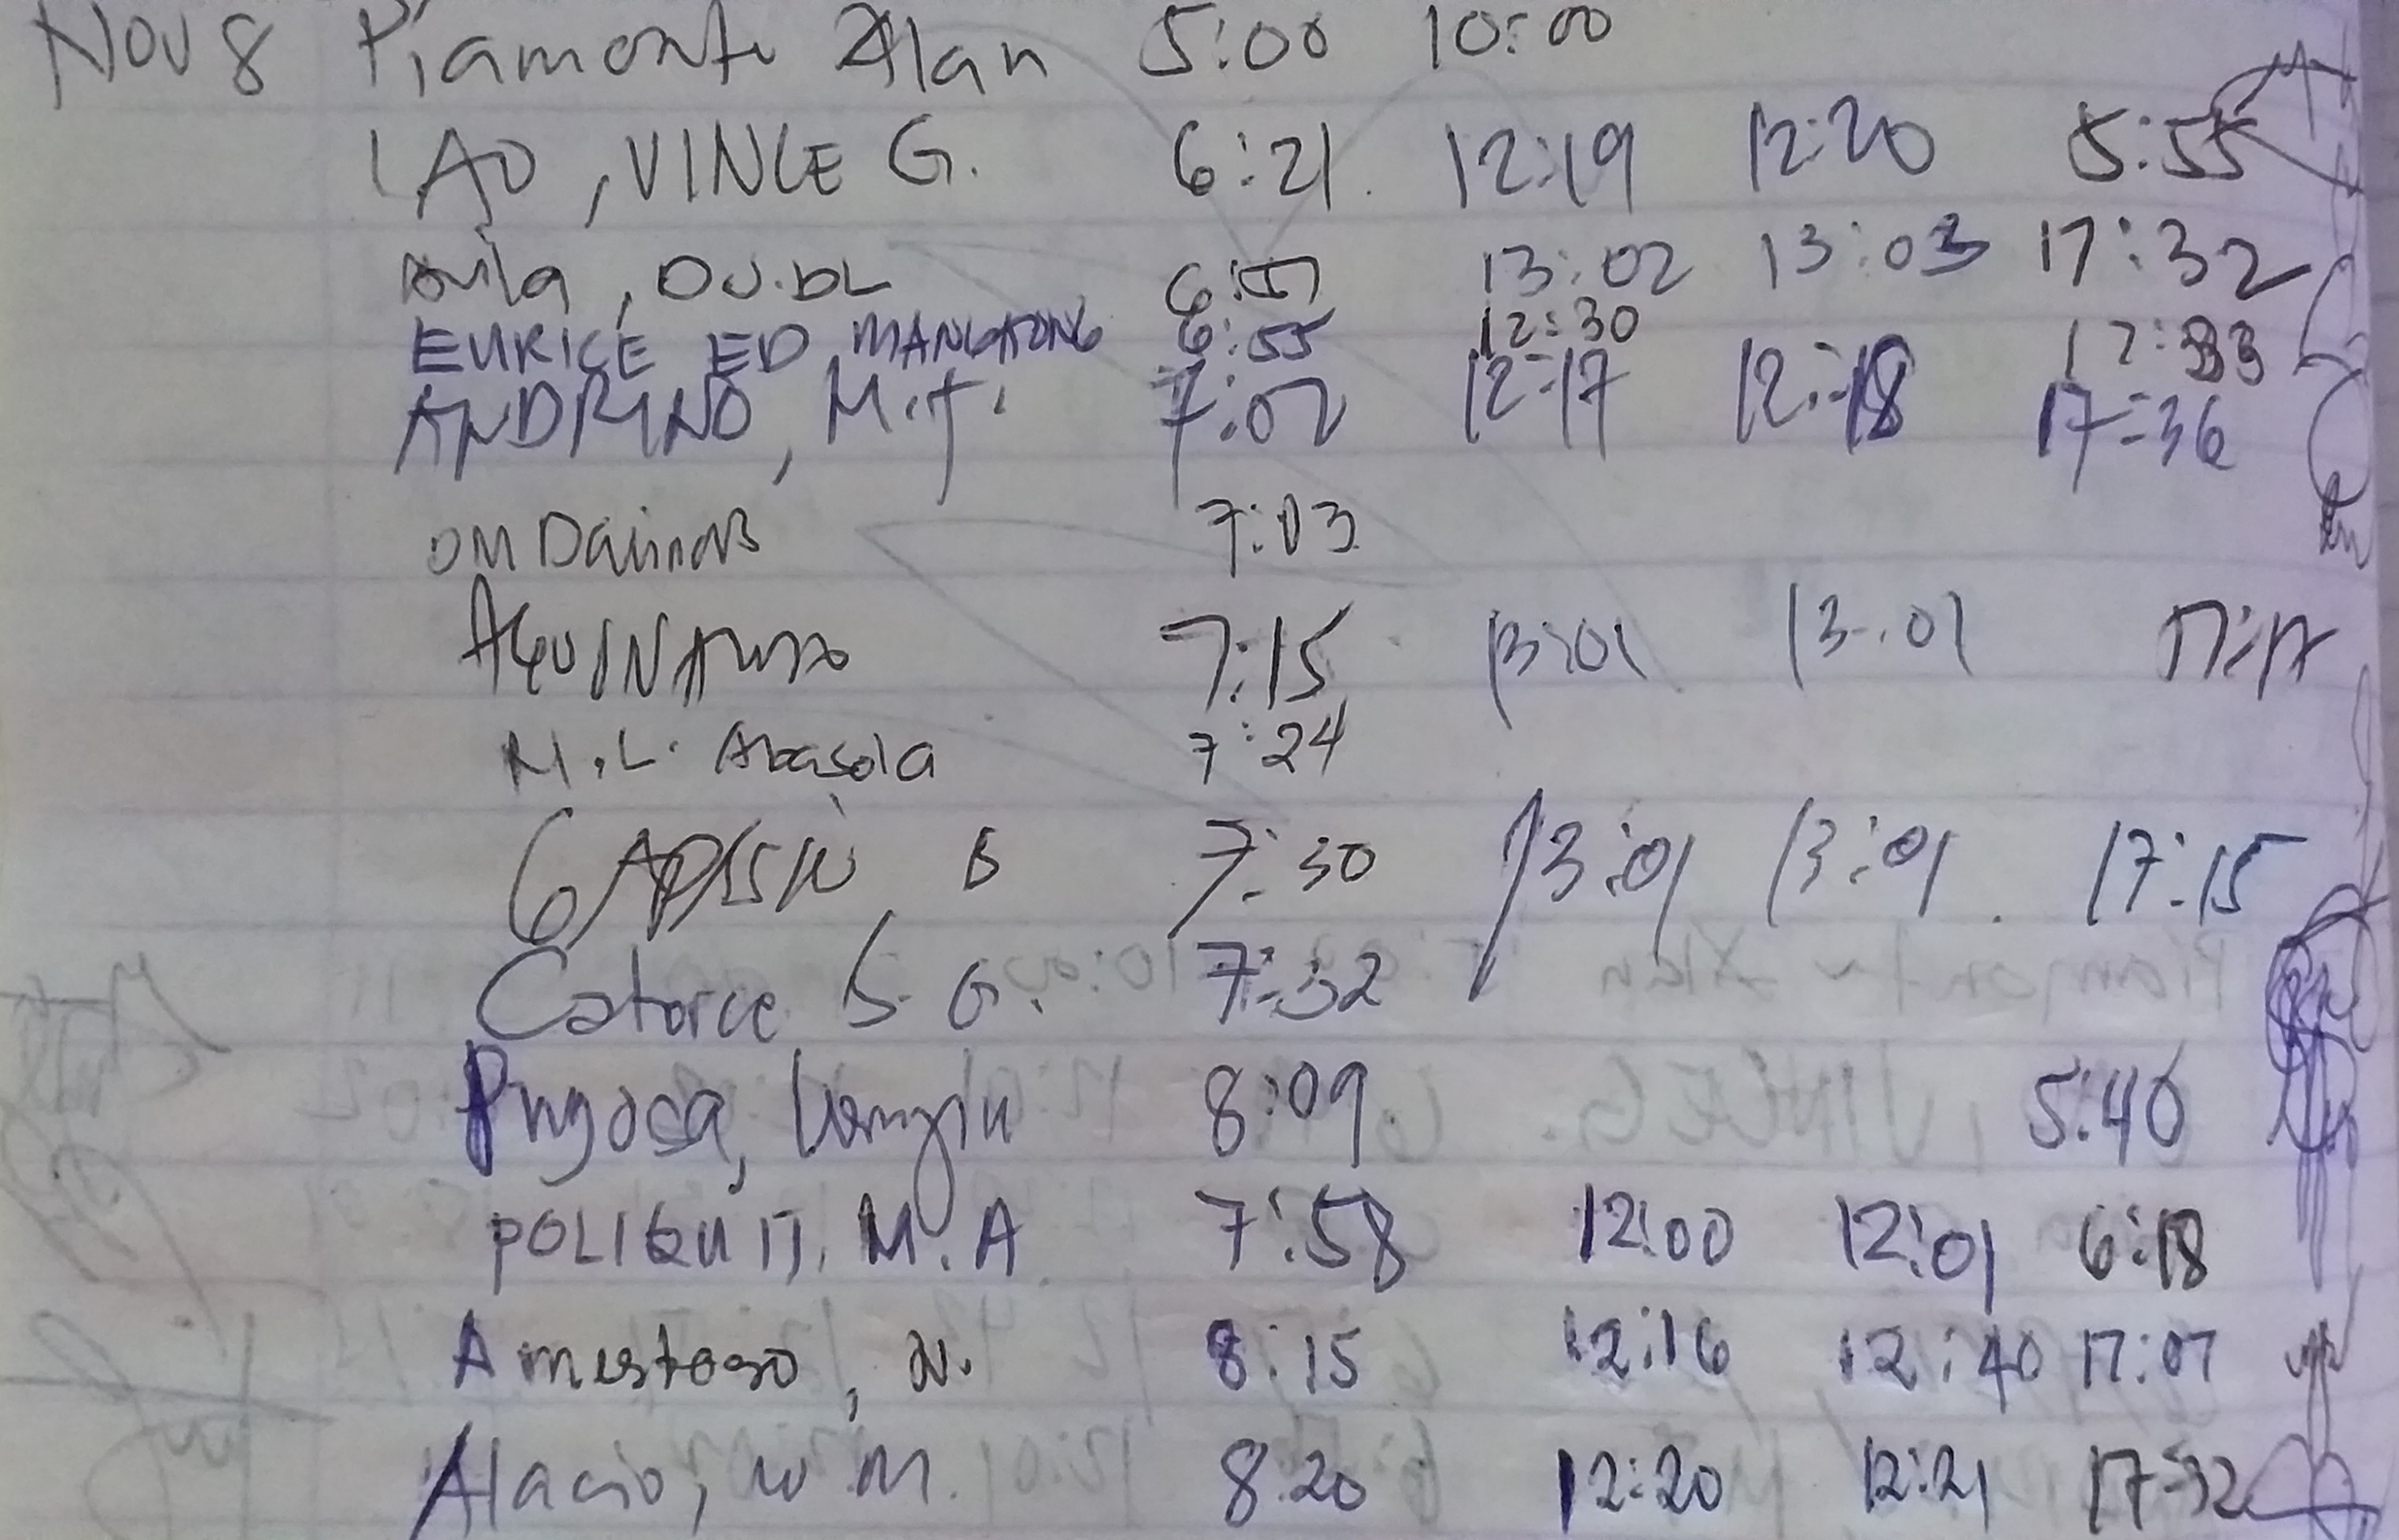 Nov 8 Piamonte Alan 5:00 10:00
LAO, VINCE G. 6:21 12:19 12:20 5:55
Avila, DV.DL 6:57 13:02 13:03 17:32
EURICE ED MANGATONG 6:55 12:30 17:33
ANDRINO, M.J. 7:02 12:17 12:18 17:36
7:03
AGUINALDO 7:15 13:01 13:01 17:17
M.L. Abasola 7:24
7:30 13:01 13:01 17:15
Catorce S. G. 7:32
Pugosa, 8:09 5:40
POLIQUIT, M.A 7:58 12:00 12:01 6:18
Amistoso, N. 8:15 12:16 12:40 17:07
Alacio, W M. 8:20 12:20 12:21 17:32